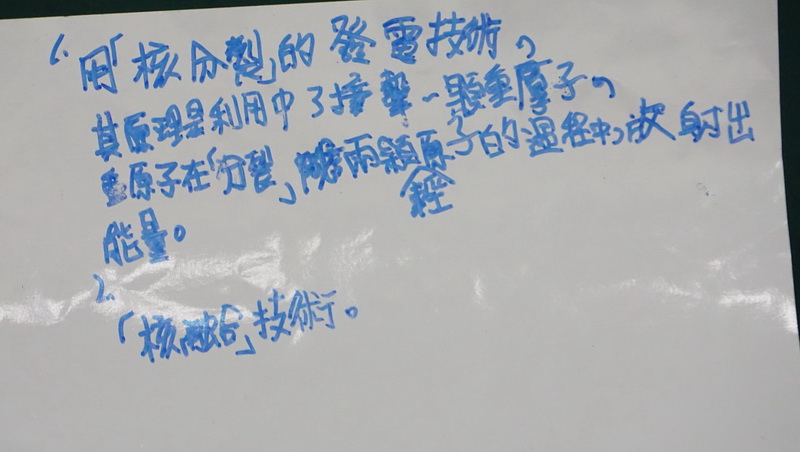 1. 用「核分裂」的發電技術,
其原理是利用中子撞擊一顆重原子,
重原子在「分裂」成兩顆輕原子的過程中,放射出
能量。
2.
「核融合」技術。